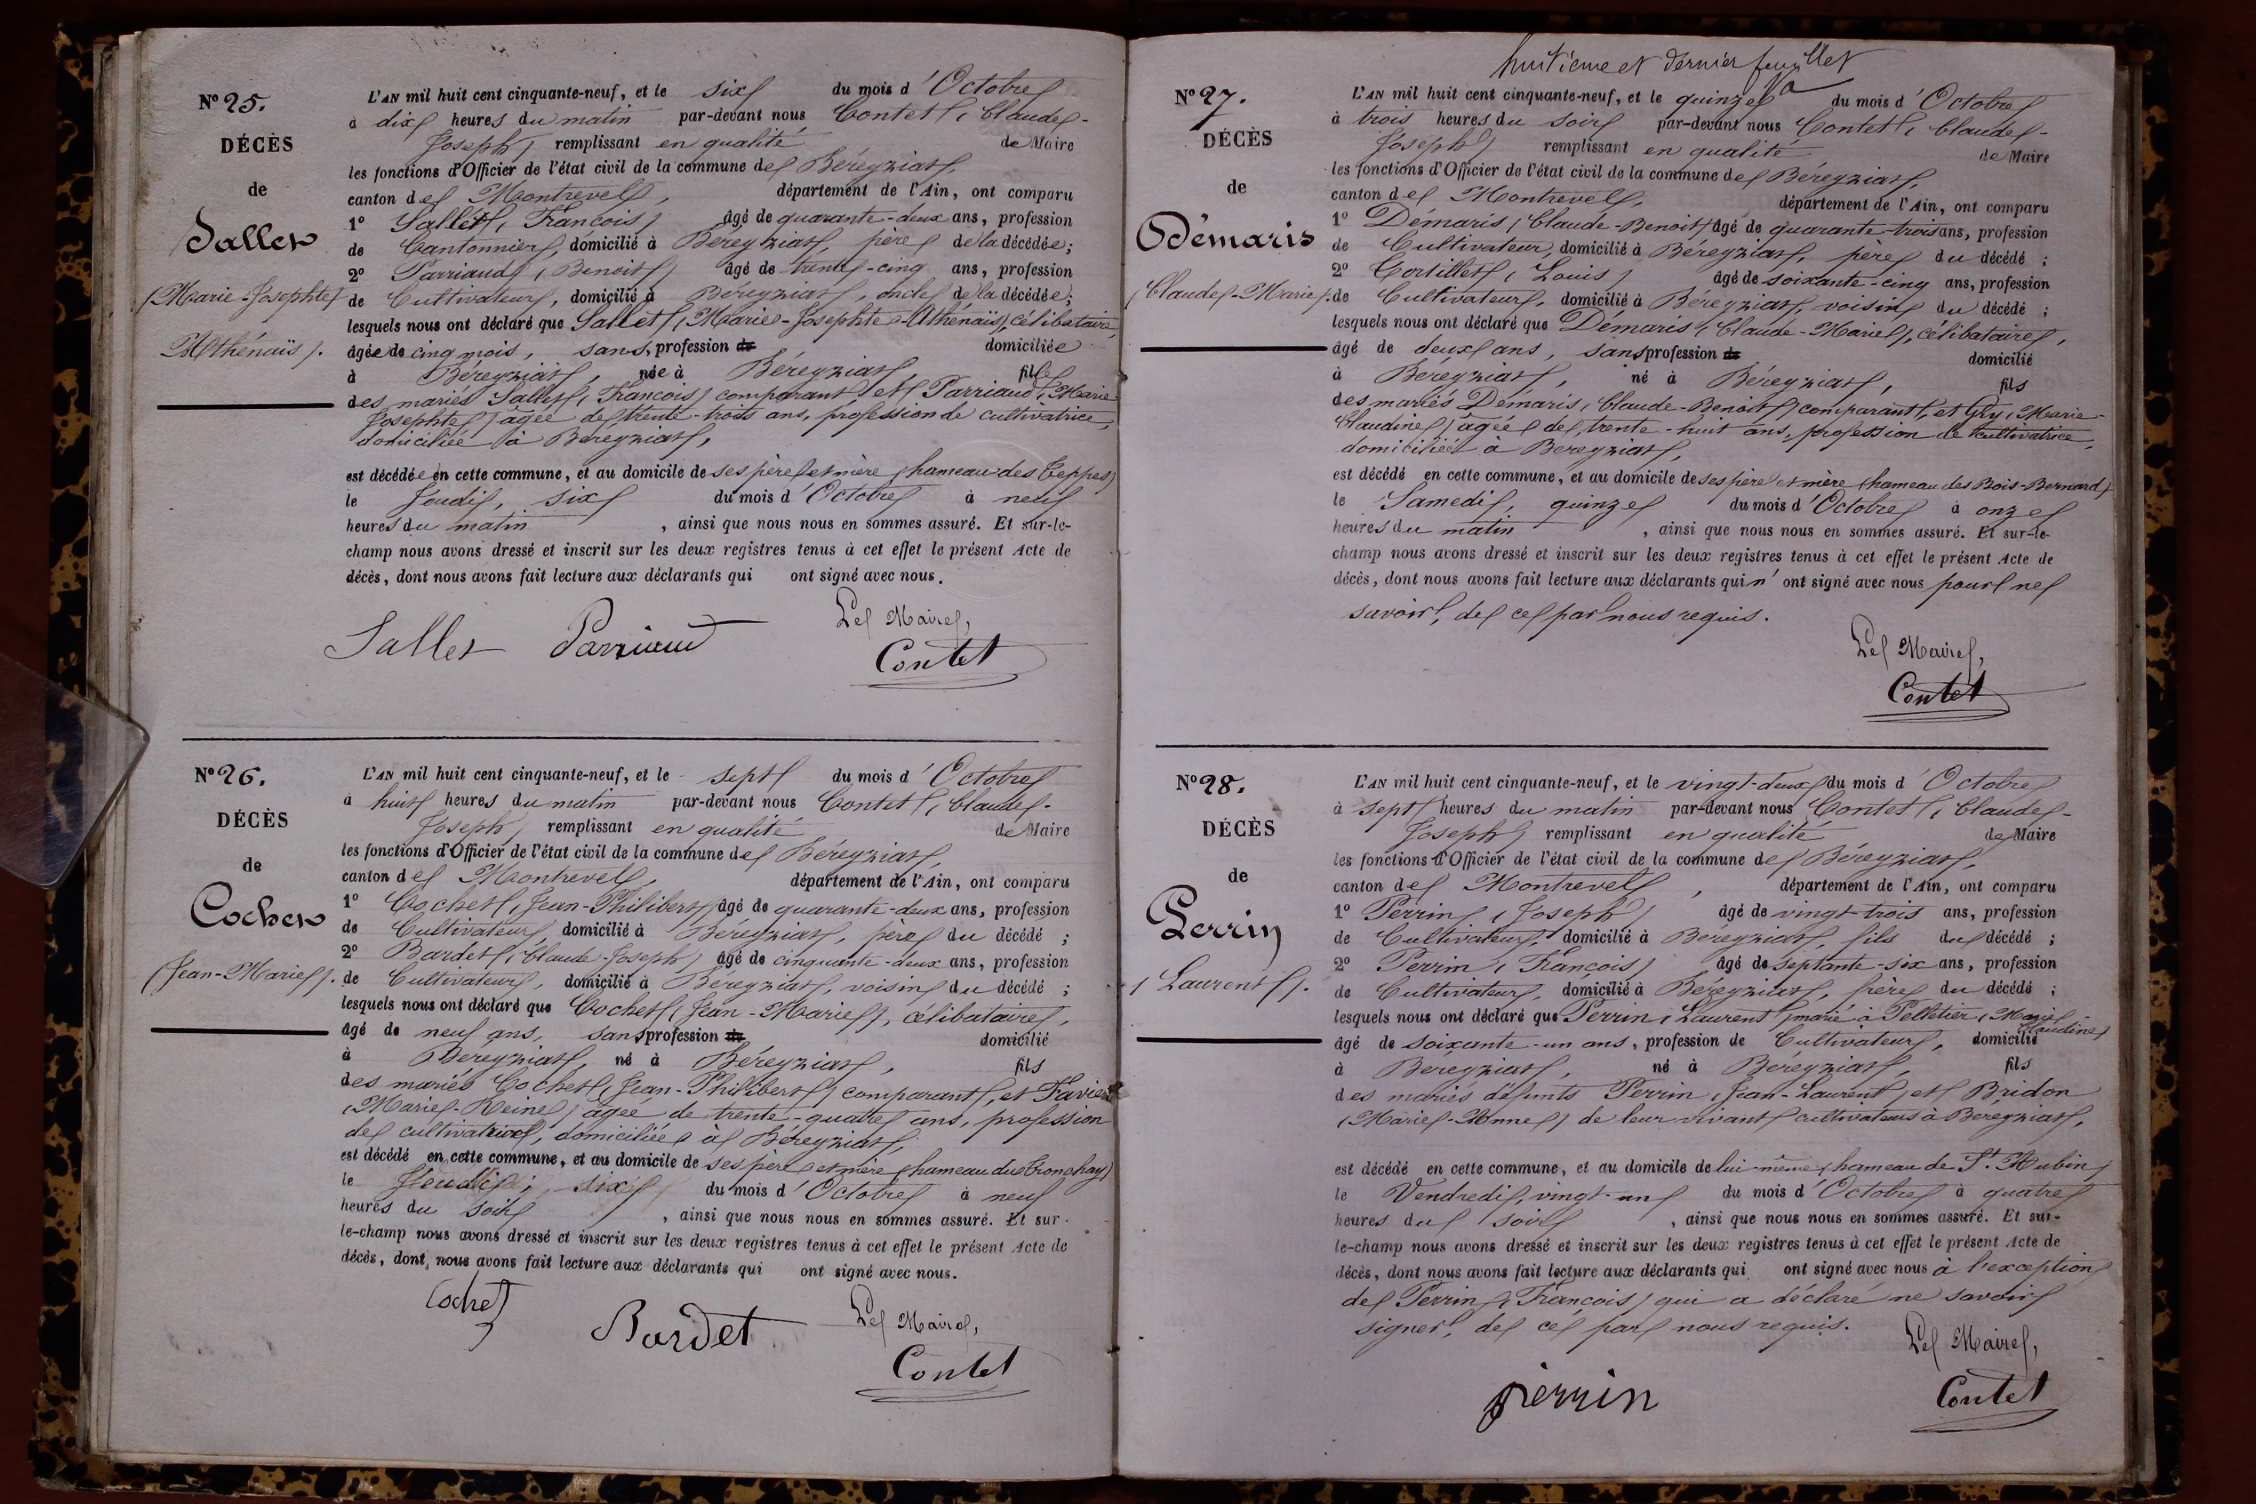 Nº 25.
DÉCÈS
de
Sallet
(Marie-Josephte
Athénaïs).
L'AN mil huit cent cinquante-neuf, et le six du mois d'Octobre
à dix heures du matin par-devant nous Contet (Claude-
Joseph) remplissant en qualité de Maire
les fonctions d'Officier de l'état civil de la commune de Béréyziat,
canton de Montrevel, département de l'Ain, ont comparu
1º Sallet (François) âgé de quarante-deux ans, profession
de Cantonnier, domicilié à Béréyziat, père de la décédée;
2º Parriaud (Benoit) âgé de trente-cinq ans, profession
de Cultivateur, domicilié à Béréyziat, oncle de la décédée;
lesquels nous ont déclaré que Sallet (Marie-Josephte-Athénaïs), célibataire,
âgée de cinq mois, sans profession de domiciliée
à Béréyziat, née à Béréyziat, fille
des mariés Sallet (François) comparant, et Parriaud (Marie
Josephte) âgée de trente-trois ans, profession de cultivatrice,
domiciliée à Béréyziat,
est décédée en cette commune, et au domicile de ses père et mère (hameau des Teppes)
le Jeudi, six du mois d'Octobre à neuf
heures du matin, ainsi que nous nous en sommes assuré. Et sur-le-
champ nous avons dressé et inscrit sur les deux registres tenus à cet effet le présent Acte de
décès, dont nous avons fait lecture aux déclarants qui ont signé avec nous.
Le Maire,
Sallet Parriaud Contet
Nº 26.
DÉCÈS
de
Cochet
(Jean-Marie).
L'AN mil huit cent cinquante-neuf, et le sept du mois d'Octobre
à huit heures du matin par-devant nous Contet (Claude-
Joseph) remplissant en qualité de Maire
les fonctions d'Officier de l'état civil de la commune de Béréyziat,
canton de Montrevel, département de l'Ain, ont comparu
1º Cochet (Jean-Philibert) âgé de quarante-deux ans, profession
de Cultivateur, domicilié à Béréyziat, père du décédé;
2º Bardet (Claude-Joseph) âgé de cinquante-deux ans, profession
de Cultivateur, domicilié à Béréyziat, voisin du décédé;
lesquels nous ont déclaré que Cochet (Jean-Marie), célibataire,
âgé de neuf ans, sans profession de domicilié
à Béréyziat, né à Béréyziat, fils
des mariés Cochet (Jean-Philibert) comparant, et Favier
(Marie-Reine) âgée de trente-quatre ans, profession
de cultivatrice, domiciliée à Béréyziat,
est décédé en cette commune, et au domicile de ses père et mère (hameau du Tronchay)
le Jeudi, six du mois d'Octobre à neuf
heures du soir, ainsi que nous nous en sommes assuré. Et sur-
le-champ nous avons dressé et inscrit sur les deux registres tenus à cet effet le présent Acte de
décès, dont nous avons fait lecture aux déclarants qui ont signé avec nous.
Le Maire,
Cochet Bardet Contet
huitième et dernier feuillet
Nº 27.
DÉCÈS
de
Démaris
(Claude-Marie).
L'AN mil huit cent cinquante-neuf, et le quinze du mois d'Octobre
à trois heures du soir par-devant nous Contet (Claude-
Joseph) remplissant en qualité de Maire
les fonctions d'Officier de l'état civil de la commune de Béréyziat,
canton de Montrevel, département de l'Ain, ont comparu
1º Démaris (Claude-Benoit) âgé de quarante-trois ans, profession
de Cultivateur, domicilié à Béréyziat, père du décédé;
2º Cortillet (Louis) âgé de soixante-cinq ans, profession
de Cultivateur, domicilié à Béréyziat, voisin du décédé;
lesquels nous ont déclaré que Démaris (Claude-Marie), célibataire,
âgé de deux ans, sans profession de domicilié
à Béréyziat, né à Béréyziat, fils
des mariés Démaris (Claude-Benoit) comparant, et Gly (Marie-
Claudine) âgée de trente-huit ans, profession de cultivatrice,
domiciliée à Béréyziat,
est décédé en cette commune, et au domicile de ses père et mère (hameau des Bois-Bernard)
le Samedi, quinze du mois d'Octobre à onze
heures du matin, ainsi que nous nous en sommes assuré. Et sur-le-
champ nous avons dressé et inscrit sur les deux registres tenus à cet effet le présent Acte de
décès, dont nous avons fait lecture aux déclarants qui n'ont signé avec nous pour ne
savoir, de ce par nous requis.
Le Maire,
Contet
Nº 28.
DÉCÈS
de
Perrin
(Laurent).
L'AN mil huit cent cinquante-neuf, et le vingt-deux du mois d'Octobre
à sept heures du matin par-devant nous Contet (Claude-
Joseph) remplissant en qualité de Maire
les fonctions d'Officier de l'état civil de la commune de Béréyziat,
canton de Montrevel, département de l'Ain, ont comparu
1º Perrin (Joseph) âgé de vingt-trois ans, profession
de Cultivateur, domicilié à Béréyziat, fils du décédé;
2º Perrin (François) âgé de septante-six ans, profession
de Cultivateur, domicilié à Béréyziat, frère du décédé;
lesquels nous ont déclaré que Perrin (Laurent) marié à Pelletier (Marie
Claudine)
âgé de soixante-un ans, profession de Cultivateur, domicilié
à Béréyziat, né à Béréyziat, fils
des mariés défunts Perrin (Jean-Laurent) et Bridon
(Marie-Anne) de leur vivant cultivateurs à Béréyziat,
est décédé en cette commune, et au domicile de lui-même (hameau de St. Aubin)
le Vendredi, vingt-un du mois d'Octobre à quatre
heures du soir, ainsi que nous nous en sommes assuré. Et sur-
le-champ nous avons dressé et inscrit sur les deux registres tenus à cet effet le présent Acte de
décès, dont nous avons fait lecture aux déclarants qui ont signé avec nous à l'exception
de Perrin (François) qui a déclaré ne savoir
signer, de ce par nous requis.
Le Maire,
perrin Contet